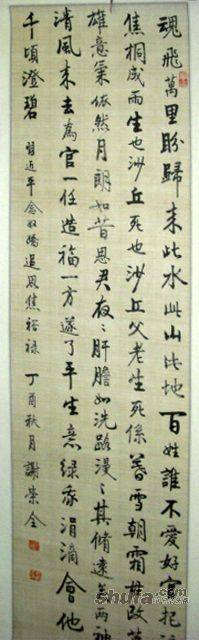 魂飛萬里盼歸來此水此山此地百姓誰不愛好官把淚
焦桐成雨生也沙丘死也沙丘父老生死係暮雪朝霜毋改英
雄意氣依然月朗如昔思君夜〻肝膽如洗路漫〻其脩遠矣兩袖
清風來去為官一任造福一方遂了平生意綠我涓滴會他
千頃澄碧
習近平念奴嬌追思焦裕祿 丁酉秋月謝榮全